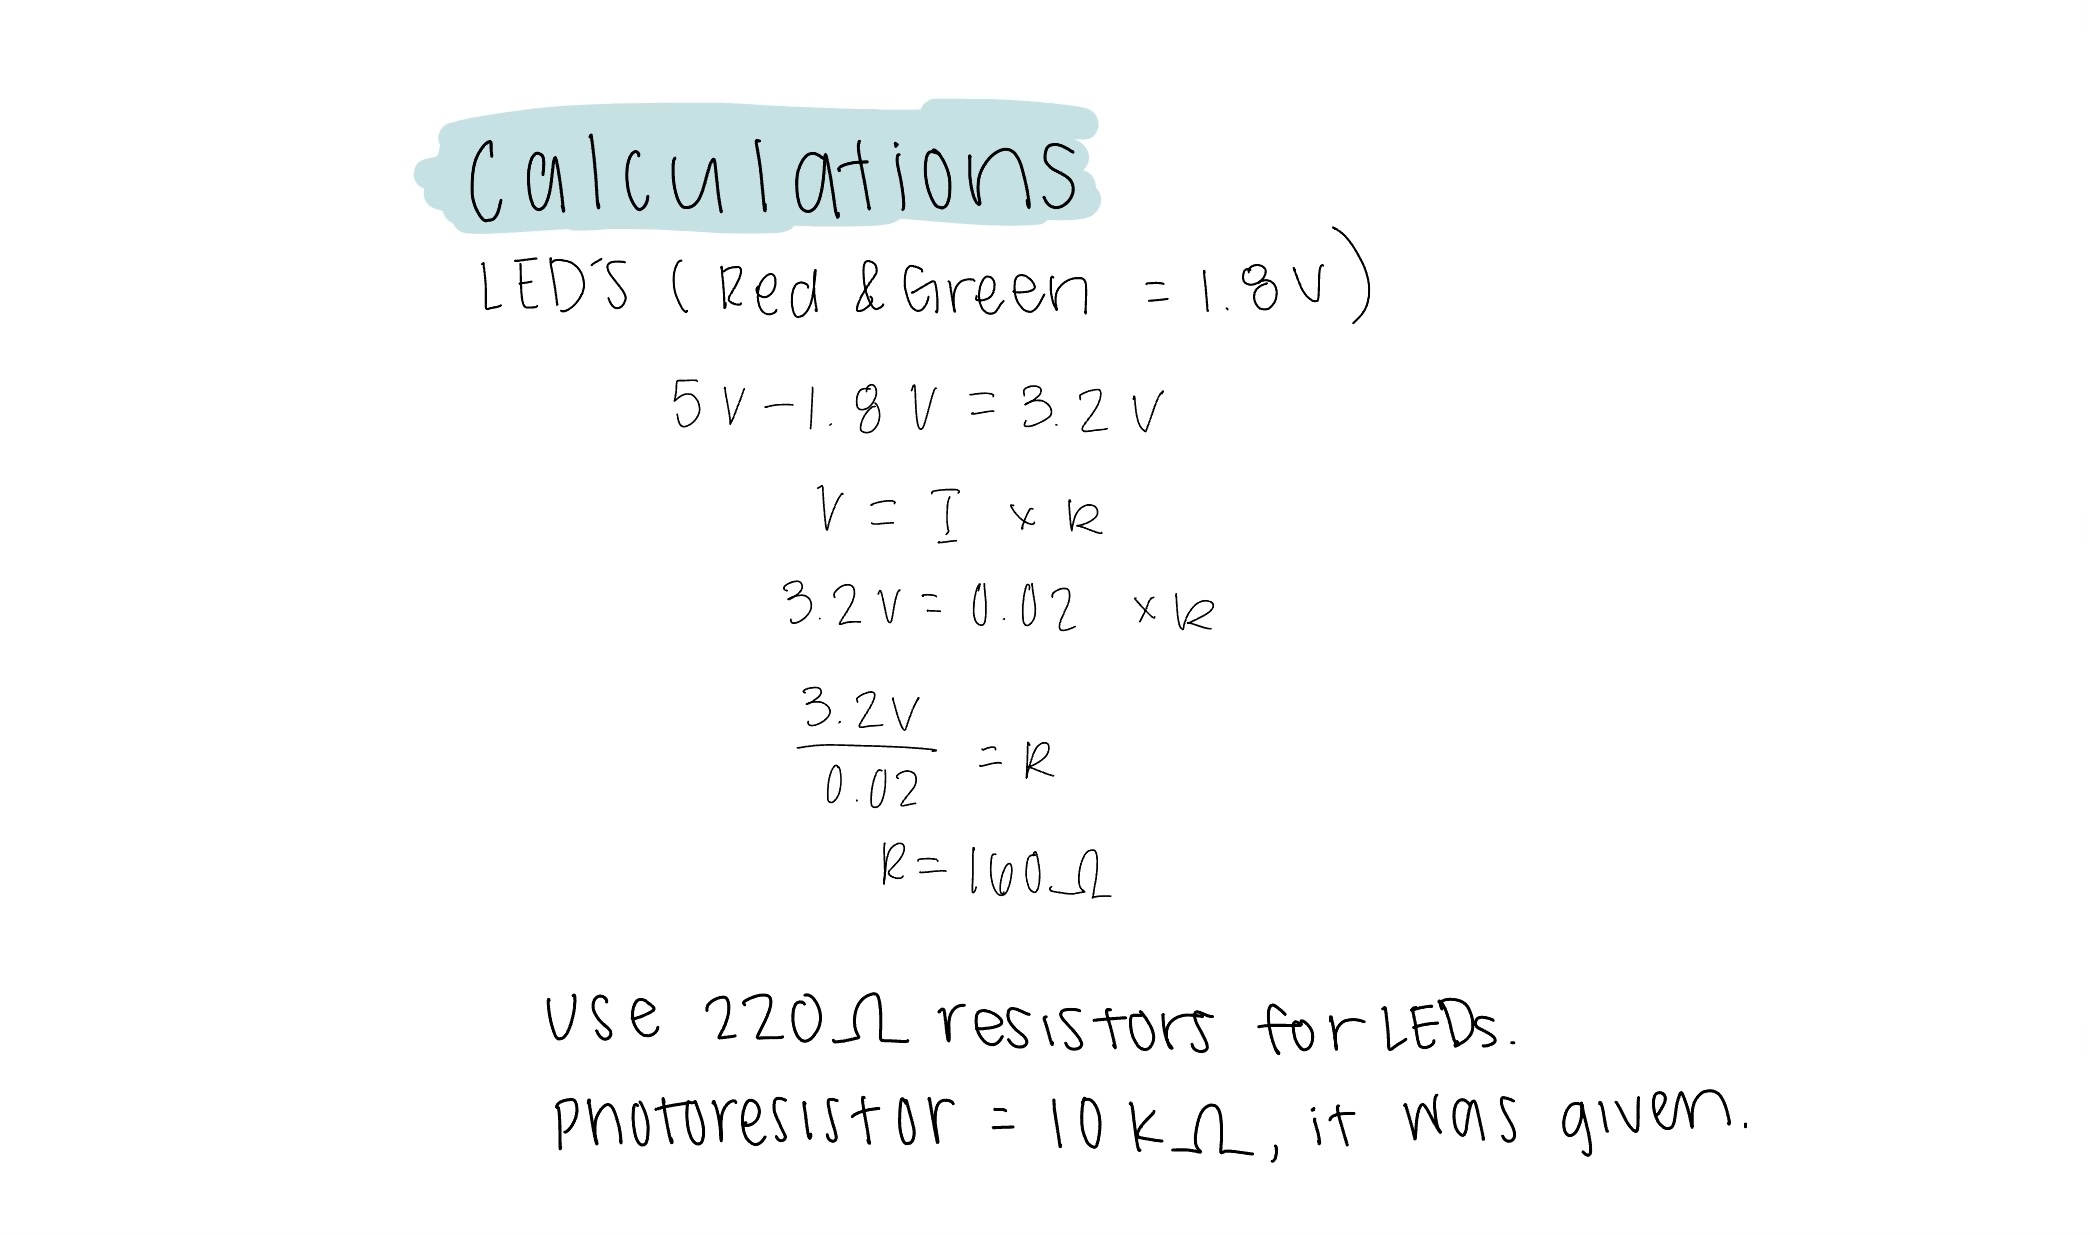 Calculations
LED'S (Red & Green = 1.8V)
5V-1.8V = 3.2V
V = I x R
3.2V = 0.02 x R
3.2V
0.02
= R
R = 160Ω
Use 220Ω resistors for LEDs.
Photoresistor = 10kΩ, it was given.